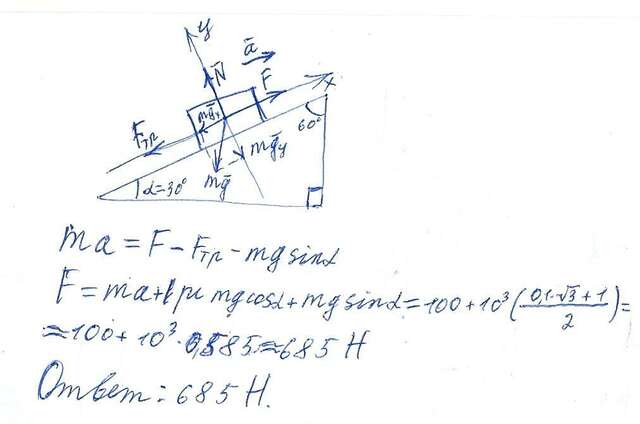 y
a
N
F
x
mgx
Fтр
60°
mgy
α=30°
mg
ma = F - Fтр - mg sinα
F = ma + μ mg cosα + mg sinα = 100 + 10³ (0,1·√3 + 1 / 2) =
≈ 100 + 10³ · 0,585 ≈ 685 Н
Ответ: 685 Н.